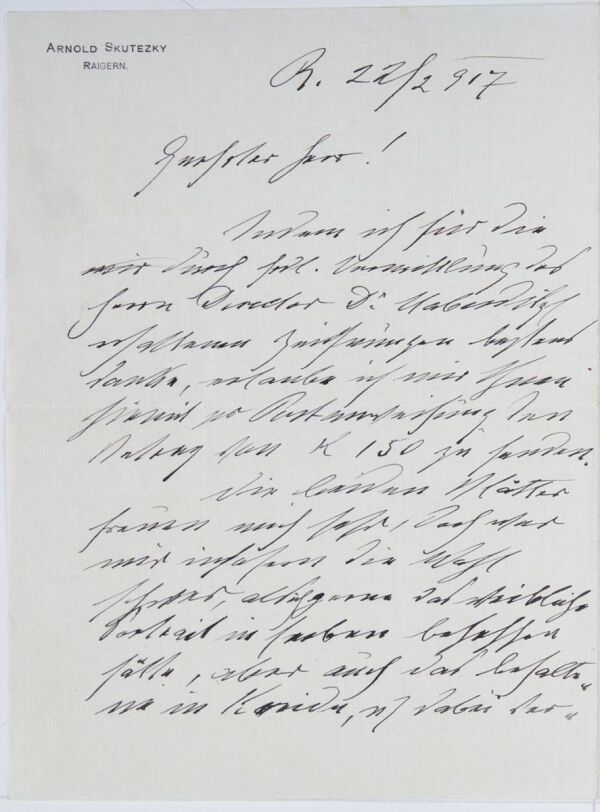 ARNOLD SKUTEZKY
RAIGERN.
R. 22/2 917
Geehrter Herr!
Indem ich für die
mir durch frdl. Vermittlung des
Herrn Director Dr. Haberditzl
erhaltenen Zeichnungen bestens
danke, erlaube ich mir Ihnen
hiemit pr Postanweisung den
Betrag von K 150 zu senden.
Die beiden Blätter
freuen mich sehr, doch war
mir insofern die Wahl
schwer, als ich gerne das weibliche
Portrait in Farben besessen
hätte, aber auch das behalte"
ne in Kreide, ist dabei der"